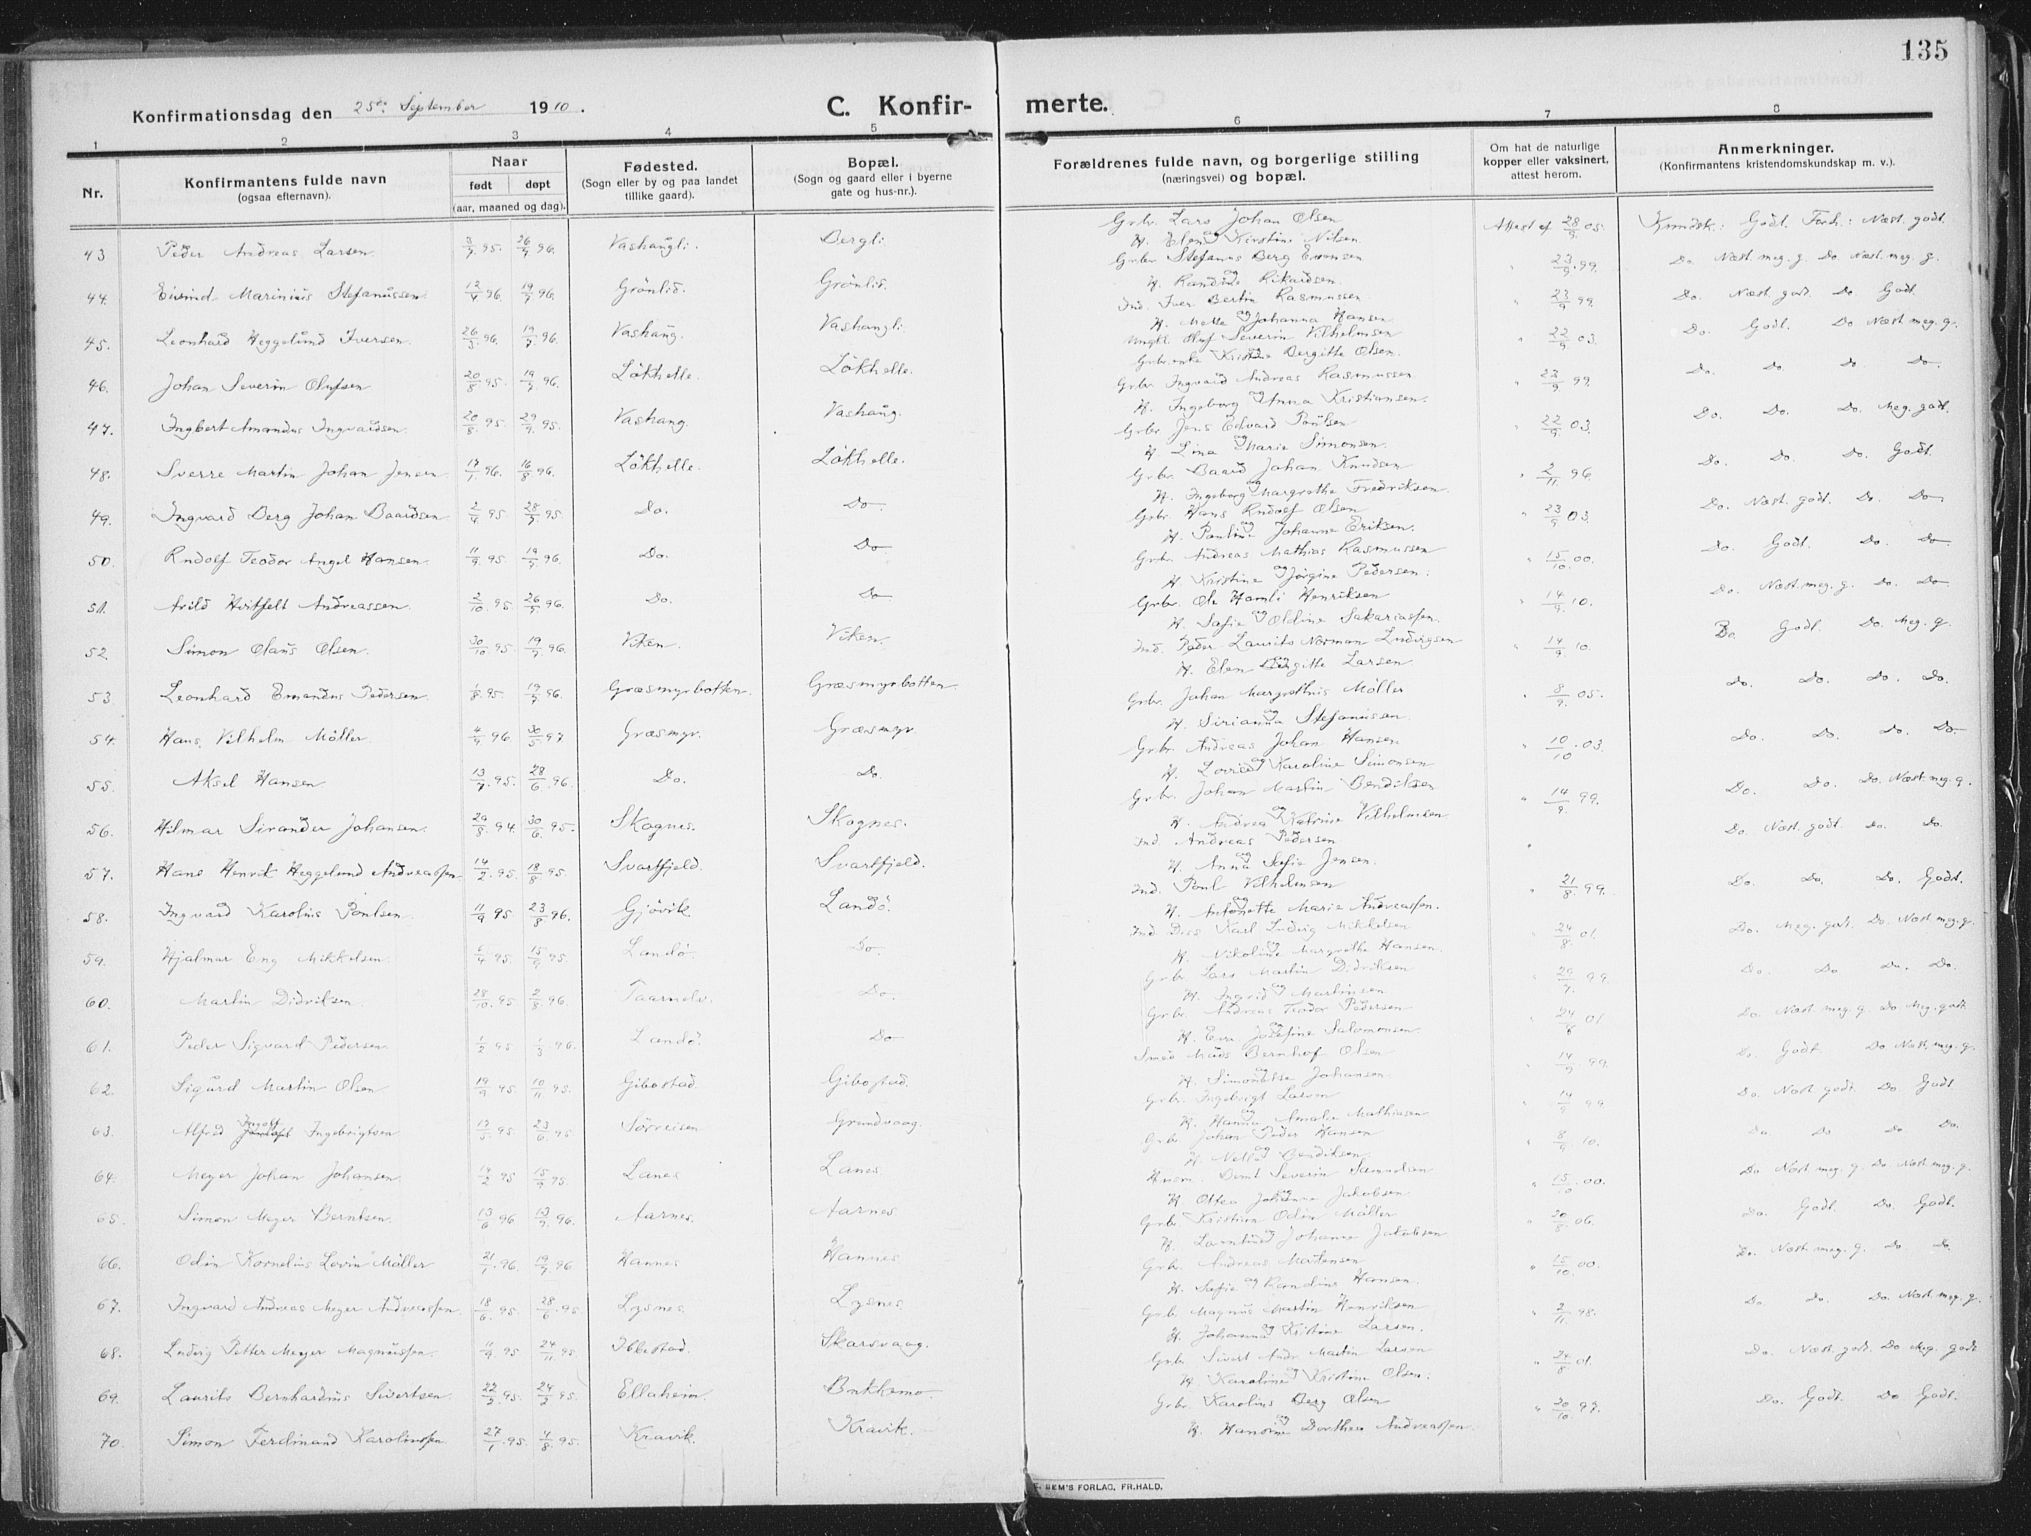 135
Konfirmationsdag den 25de September 1910.
C. Konfir- merte.
1 2 3 4 5 6 7 8
Nr.
Konfirmantens fulde navn
(ogsaa efternavn).
Naar
født døpt
(aar, maaned og dag).
Fødested.
(Sogn eller by og paa landet
tillike gaard).
Bopæl.
(Sogn og gaard eller i byerne
gate og hus-nr.).
Forældrenes fulde navn, og borgerlige stilling
(næringsvei) og bopæl.
Om hat de naturlige
kopper eller vaksinert,
attest herom.
Anmerkninger.
(Konfirmantens kristendomskundskap m. v.).
43 Peder Andreas Larsen 95. 26/7 96. Vashaugli. Bergli. Grbr. Lars Johan Olsen Attest af 28/9 05. Kundsk.: Godt. Forh.: Næst. godt.
H. Elen Kirstine Nilsen
44. Eivind Marinius Stefanussen 12/4 96. 19/7 96. Grönlid. Grönlid. Grbr. Stefanus Berg Evensen 23/9 99. Do. Næst. meg. g. Do Næst. meg. g.
45. Leonhard Heggelund Iversen. 26/3 96. 19/7 96. Vashaug. Vashaugli. Ind. Iver Bertin Rasmussen 23/9 99. Do. Næst. godt. Do Godt
H. Mette Johanna Hansen
46. Johan Severin Olufsen 20/8 95. 19/7 96. Lökhelle. Lökhelle. Ungkl. Oluf Severin Vilhelmsen 22/9 03. Do. Godt. Do Næst meg. g.
Grbr. enke Kristine Bergitte Olsen.
47. Ingbert Amandus Ingvardsen. 20/8 95. 29/9 95. Vashaug. Vashaug. Grbr. Ingvard Andreas Rasmussen 23/9 99. Do. Do. Do. Do.
H. Ingeborg Anna Kristiansen.
48. Sverre Martin Johan Jensen 17/1 96. 16/8 96. Lökhelle. Lökhelle. Grbr. Jens Edvard Poulsen 22/9 03. Do. Do. Do. Meg. godt.
H. Lina Marie Simonsen.
49. Ingvard Berg Johan Baardsen 2/4 95. 28/7 95. Do. Do Grbr. Baard Johan Knudsen 2/11 96. Do. Do. Do. Godt.
H. Ingeborg Margrethe Fredriksen.
50. Rudolf Teodor Angel Hansen. 11/9 95. 19/7 96. Do. Do Grbr. Hans Rudolf Olsen 23/9 03. Do. Næst. godt. Do. Do
H. Pauline Johanne Eriksen.
51. Arild Hvitfelt Andreassen. 2/10 95. 26/7 96. Do. Do Grbr. Andreas Mathias Rasmussen 15/10 00. Do. Godt. Do. Do
H. Kristine og Jörgine Pedersen.
52. Simon Olaus Olsen. 30/10 95. 19/7 96. Viken. Viken. Grbr. Ole Hamli Henriksen 14/9. 10. Do. Næst meg. g. Do. Do
H. Sofie Oldine Sakariassen.
53. Leonhard Emandus Pedersen. 1/8 95. 19/7 96. Græsmyrbotten. Græsmyrbotten. Ind. Peder Laurits Norman Ludvigsen 14/9. 10. Do. Godt Do. Meg. g.
H. Elen Larsen.
54. Hans Vilhelm Möller. 96. 30/5 97 Græsmyr. Græsmyr. Grbr. Johan Margrethius Möller 8/9. 05. Do. Do. Do. Do.
H. Sirianna Stefanussen.
55. Aksel Hansen 13/7 95. 28/6 96. Do. Do. Grbr. Andreas Johan Hansen 10/10 03. Do. Do. Do. Do
H. Karoline Simonsen
56. Hilmar Sivander Johansen. 29/8 94. 30/6 95. Skognes. Skognes. Grbr. Johan Martin Bendiksen 14/9. 99. Do. Do. Do. Næst meg. g.
H. Andrea Katrine Vilhelmsen
57. Hans Henrik Heggelund Andreassen 14/2 95. 18/8 95. Svartfjeld. Svartfjeld. Ind. Andreas Pedersen Do. Næst. godt. Do. Do.
H. Anna Sofie Jensen.
58. Ingvard Karolius Poulsen. 11/9 95. 23/8 96. Gjövik. Landö. Ind. Poul Vilhelmsen 21/8 99. Do. Do. Do. Godt.
H. Antonette Marie Andreassen.
59. Hjalmar Eng Mikkelsen. 95. 15/9 95. Landö. Do Ind. Karl Ludvig Mikkelsen 24/8 01. Do. Meg. godt. Do. Næst meg. g.
H. Nikoline Margrethe Hansen.
60. Martin Didriksen. 28/10 95. 2/8 96. Taarnelv. Do. Grbr. Lars Martin Didriksen 99 Do. Do Do. Do.
H. Ingrid Martinsen
61. Peder Sigvard Pedersen 1/2 95. 1/3 96. Landö. Do Grbr. Andreas Teodor Pedersen 01 Do. Næst meg. g. Do Meg. godt
H. Eva Josefine Salomonsen.
62. Sigurd Martin Olsen 19/9 95. 10/11 95. Gibostad. Gibostad. Smed Mads Bernhof Olsen 14/9 99. Do. Godt. Do Næst. meg. g.
H. Johansen.
63. Alfred Ingolf Ingebrigtsen 17/5 95. 23/6 95 Sörreisen Grundvaag. Grbr. Ingebrigt Larsen 14/9 99 Do. Næst godt. Do. Godt
H. Hanna Amalie Mathisen
64. Meyer Johan Johansen. 19/2 95 15/9 95. Lanes Lanes Grbr Johan Peder Hansen 8/9. 10. Do Do Do Do.
H. Bendiksen.
65. Simon Meyer Berntsen. 13/6 96 13/9 96. Aarnes. Aarnes Husm. Bernt Severin Samuelsen 15/10 00. Do. Næst meg. g. Do. Næst meg. g.
H. Ottea Jakobsen.
66. Odin Kornelius Lovin Möller 21/1 96. 19/7 96 Hannes Hannes Grbr. Kristian Odin Möller 20/8 06. Do. Godt. Do. Godt.
H. Johanne Jakobsen
67. Ingvard Andreas Meyer Andreassen. 18/6. 95. 28/6 95 Lysnes. Lysnes. Grbr. Andreas Martensen 15/10. 00. Do. Næst. meg. g. Do. Do.
H. Sofie og Randine Hansen.
68. Ludvig Petter Meyer Magnussen. 11/9 95 24/11 95. Ibbestad. Skarsvaag. Grbr. Magnus Martin Henriksen 2/11 98. Do Do. Do. Næst meg. g.
H. Johanna Kristine Larsen.
69. Laurits Bernhardius Sivertsen 22/2 95. 24/3 95. Ellaheim Bukkemo. Grbr. Sivert Andr. Martin Larsen 24/8 01. Do. Næst. godt. Do Meg. godt
H. Karoline Kristine Olsen.
70. Simon Ferdinand Karoliussen. 27/1 95. 95. Kravik. Kravik. Grbr. Karolius Berg Olsen 20/10 97. Do. Godt. Do Godt.
H. Hansine Dorthea Andreassen.
BEM'S FORLAG, FR.HALD.